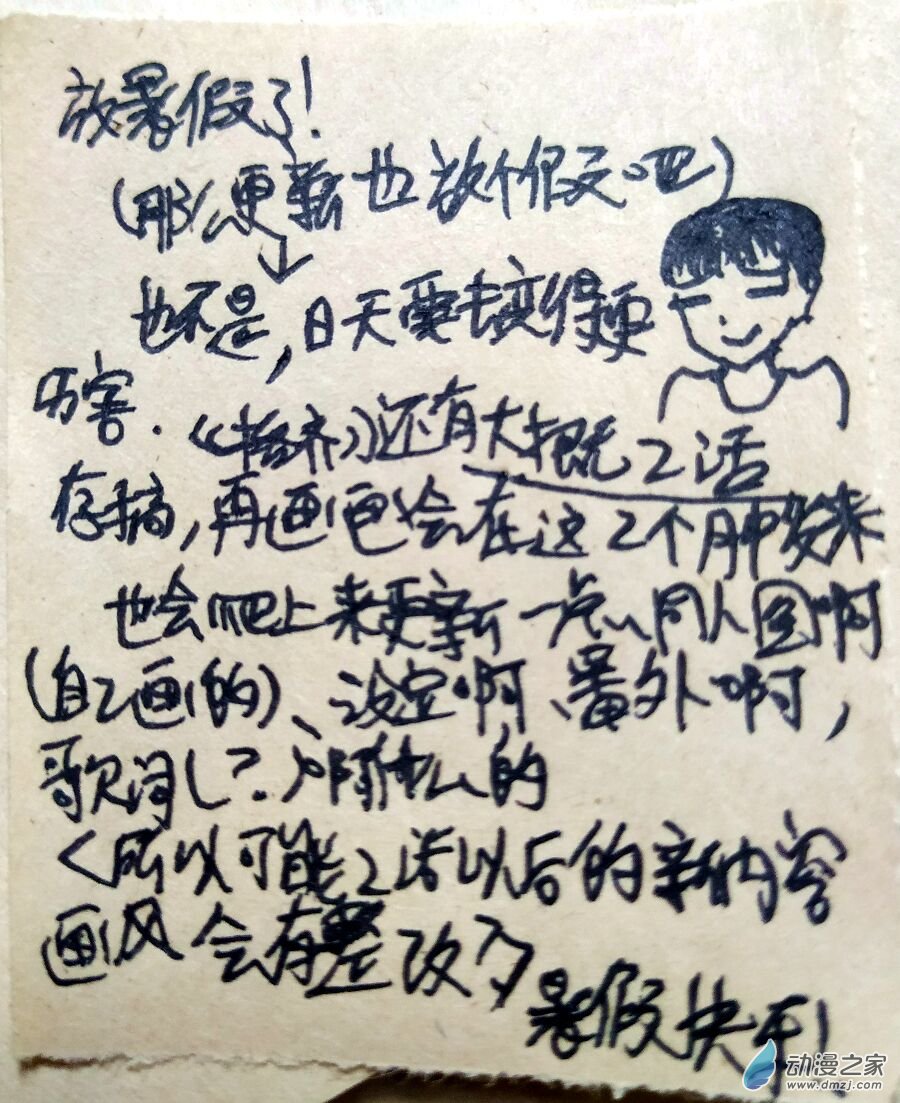 放暑假了!
(那么更新也放个假吧)
也不是,日天要去变得更
厉害.《格齐》还有大概2话
存稿,再画画会在这2个月中发来
也会爬上来更新一点同人图啊
(自己画的)、设定啊、番外啊,
歌词(?)啊什么的
<所以可能2话以后的新内容
画风会有整改>
暑假快乐!
动漫之家
www.dmzj.com